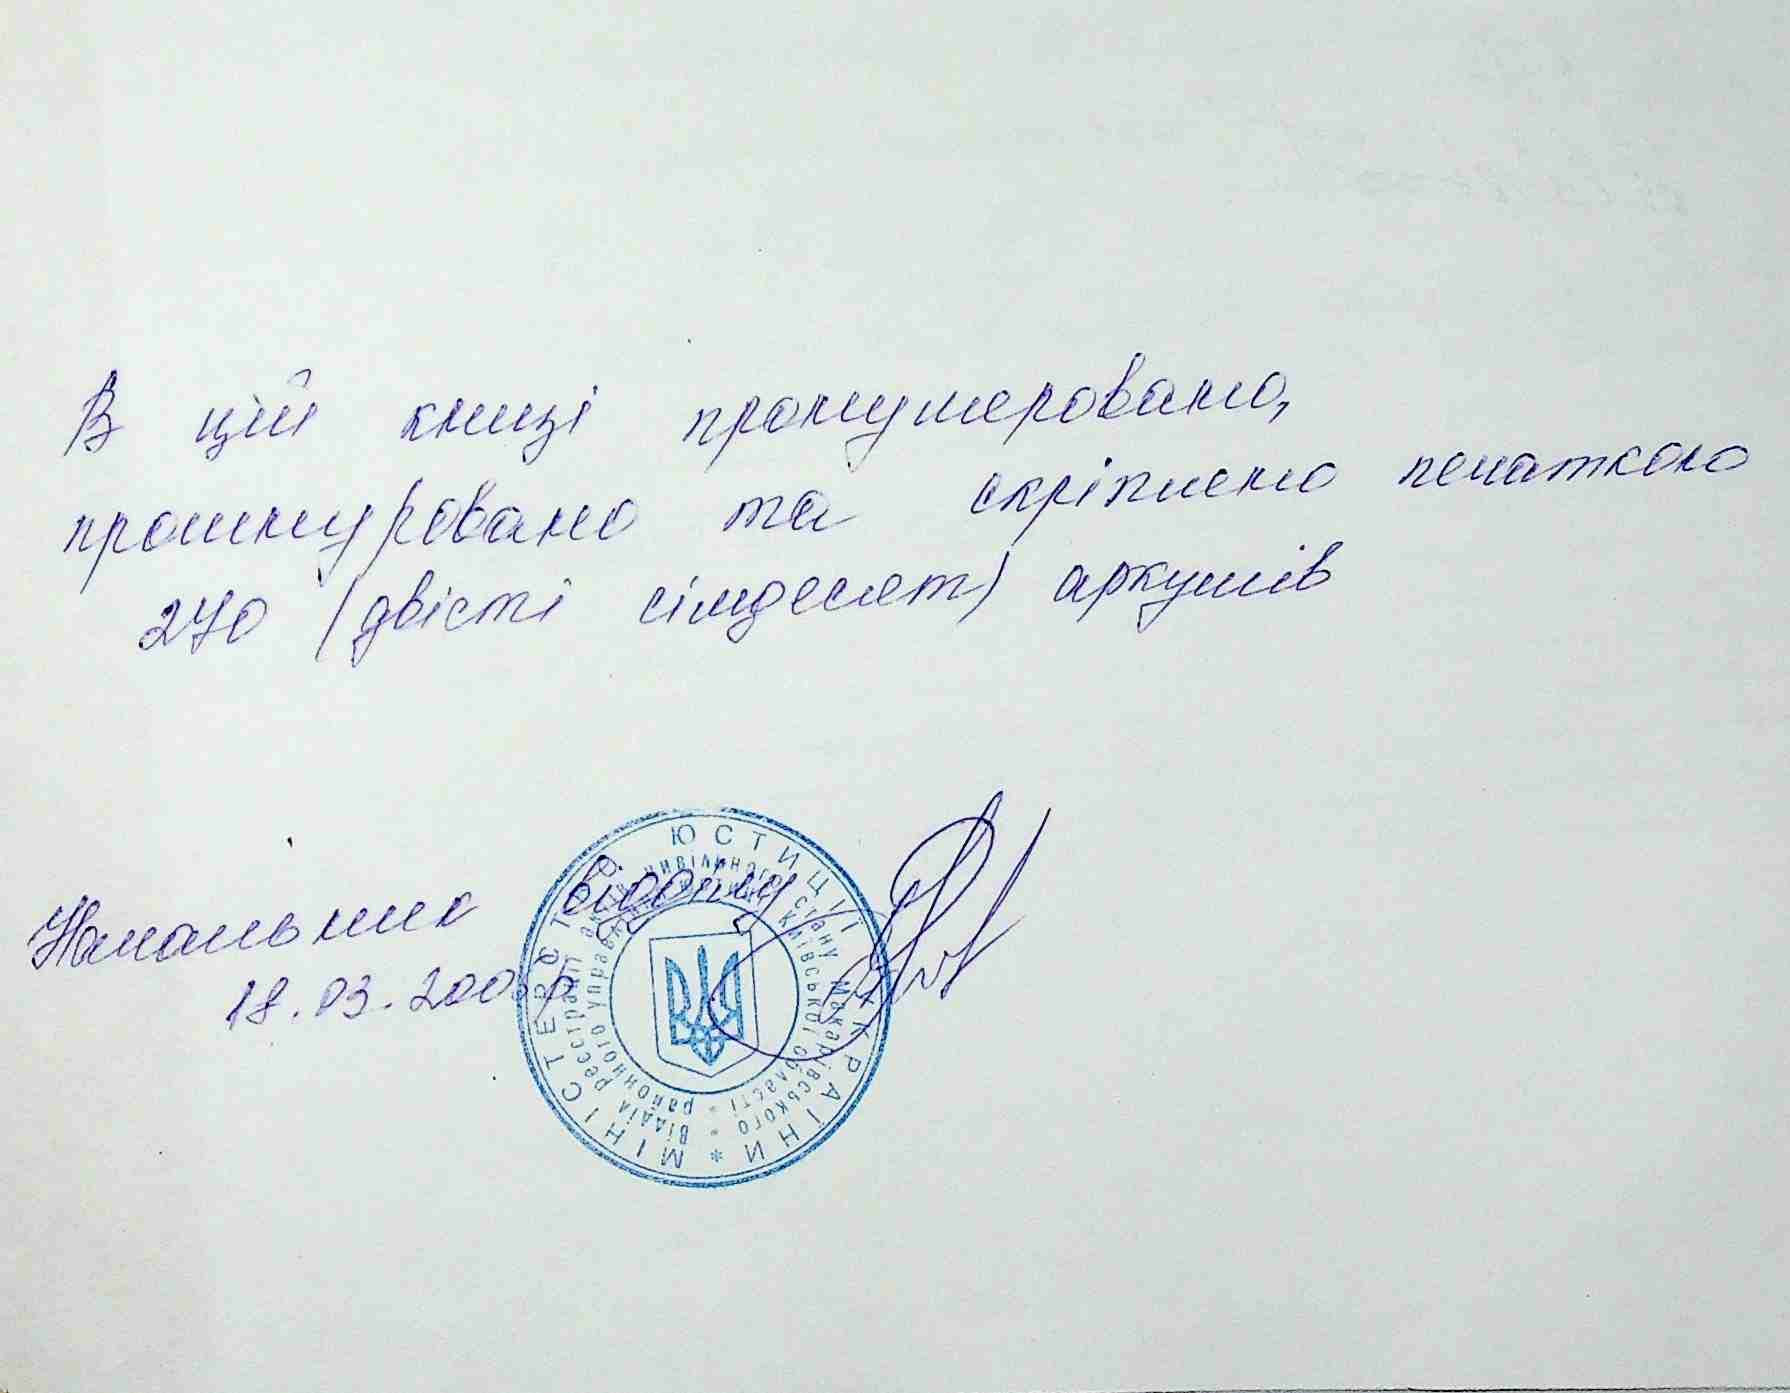 В цій книзі пронумеровано,
прошнуровано та скріплено печаткою
270 (двісті сімдесят) аркушів
Начальник відділу
18.03.200
МІНІСТЕРСТВО ЮСТИЦІЇ УКРАЇНИ *
Відділ реєстрації актів цивільного стану Макарівського *
районного управління юстиції Київської області *